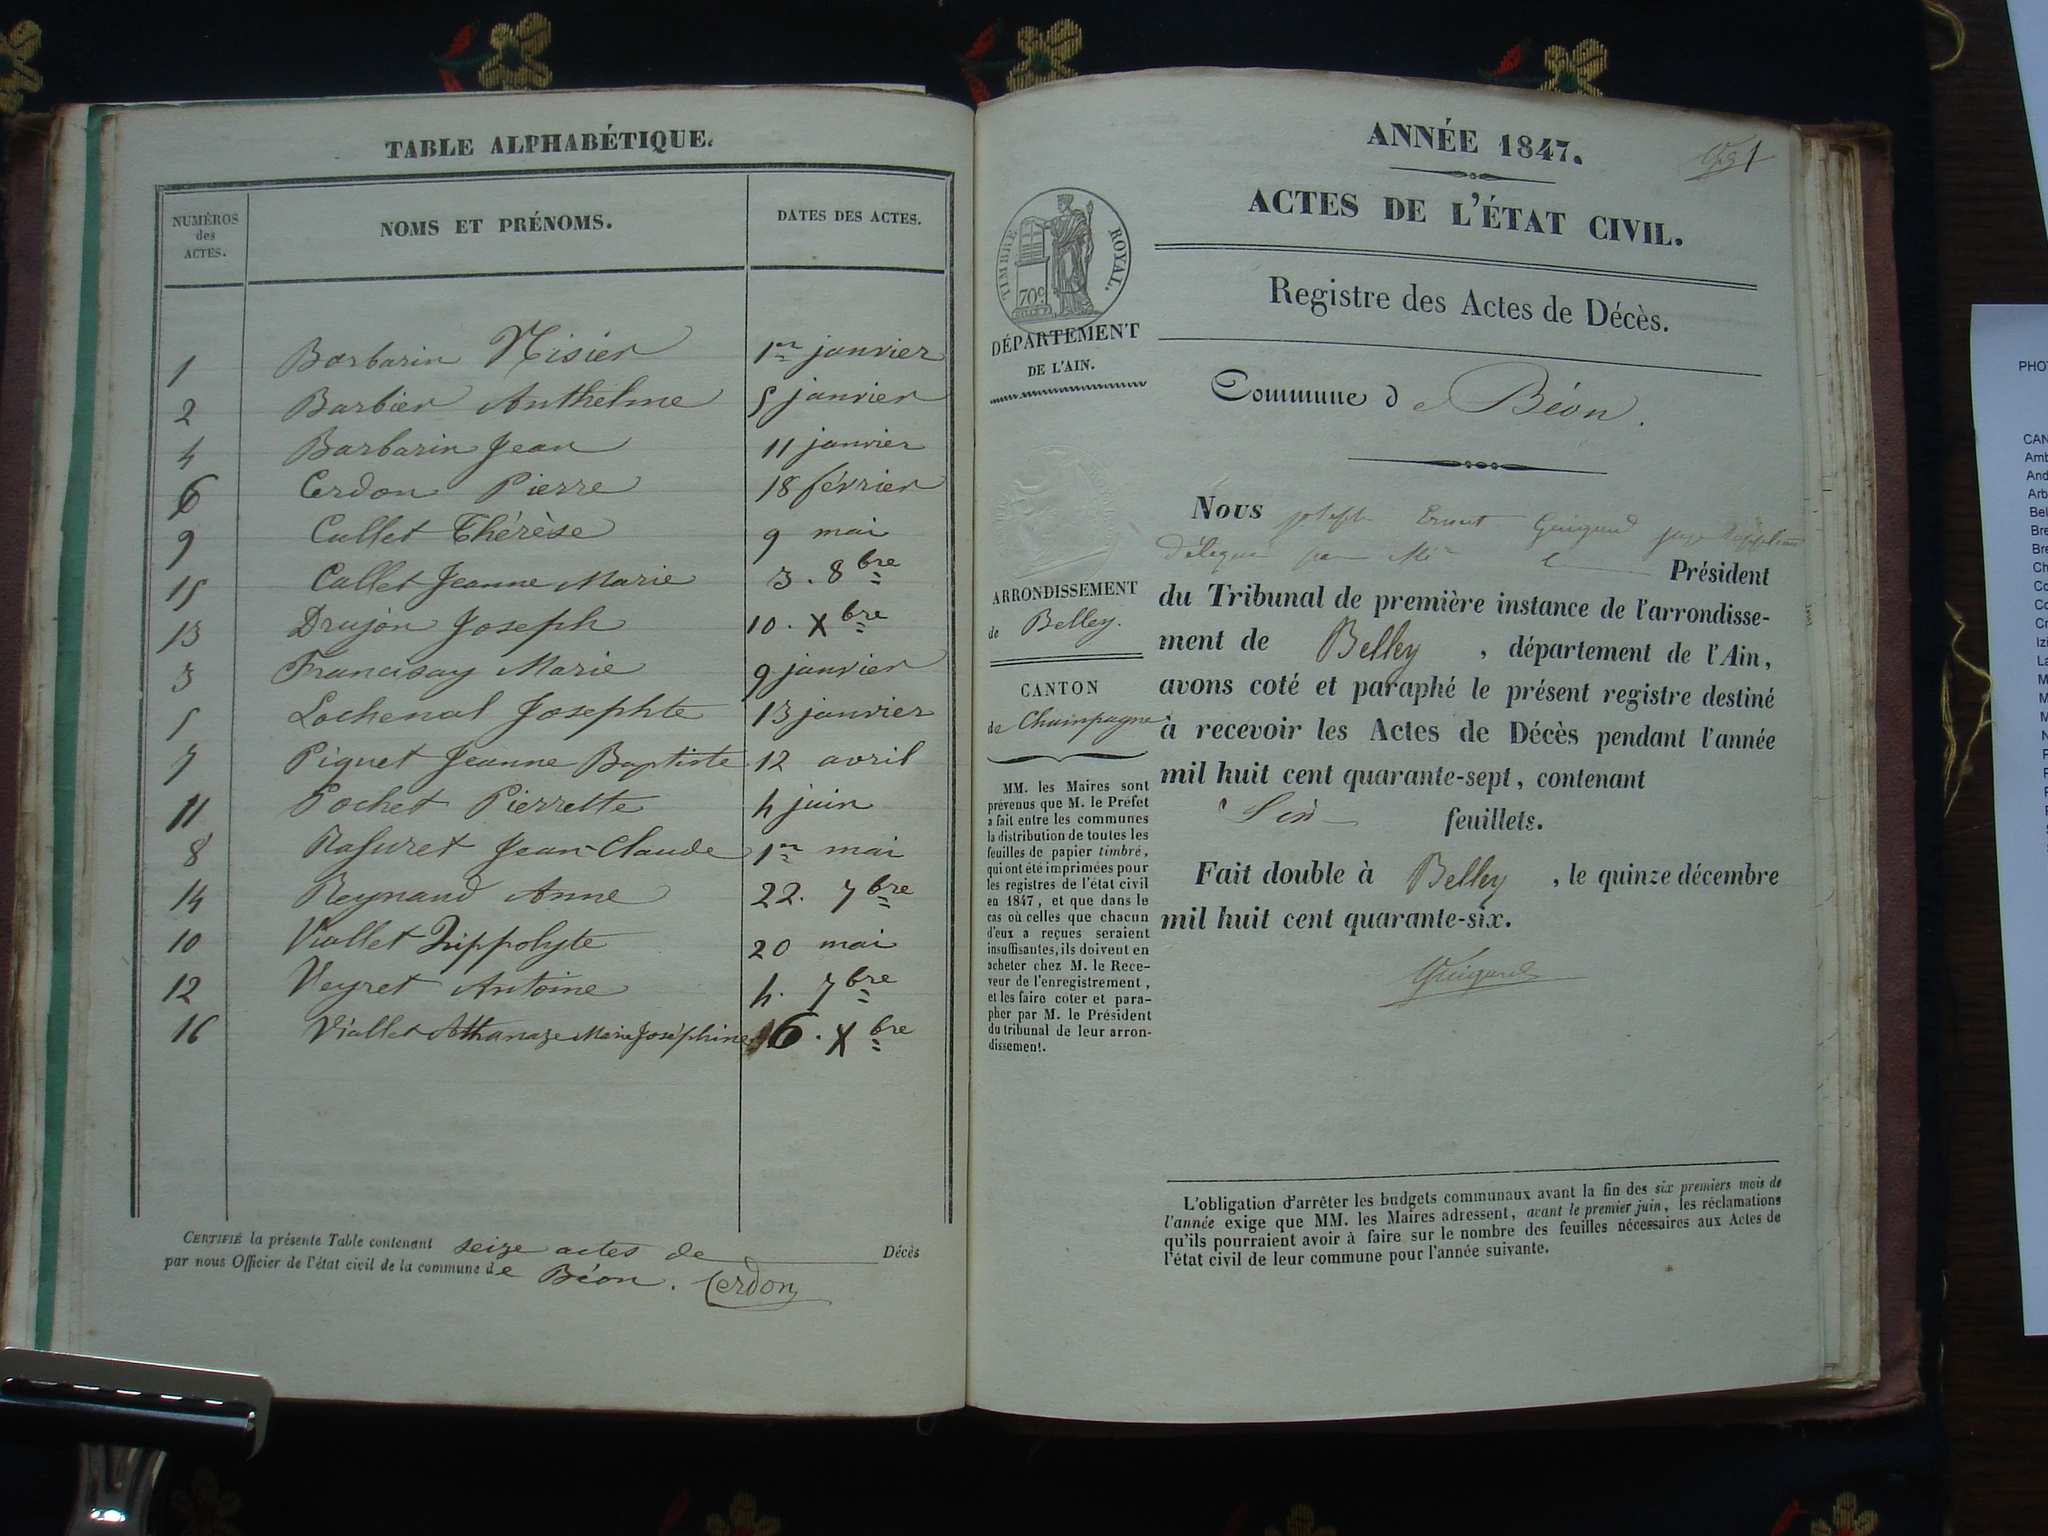 TABLE ALPHABÉTIQUE.
NUMÉROS des ACTES. NOMS ET PRÉNOMS. DATES DES ACTES.
1 Barbarin Nisier 1er janvier
2 Barbier Anthelme 5 janvier
4 Barbarin Jean 11 janvier
6 Cerdon Pierre 18 février
9 Cullet Thérèse 9 mai
15 Cullet Jeanne Marie 3. 8bre
13 Drujon Joseph 10. Xbre
3 Marie 9 janvier
5 Lochenal Josephte 13 janvier
7 Piquet Jeanne Baptiste 12 avril
11 Pochet Pierrette 4 juin
8 Jean-Claude 1er mai
14 Reynaud Anne 22. 7bre
10 Viallet hippolyte 20 mai
12 Veyret Antoine 4. 7bre
16 Viallet Athanaze Marie Joséphine 16. Xbre
CERTIFIÉ la présente Table contenant seize actes de Décès
par nous Officier de l'état civil de la commune de Béon. Cerdon
ANNÉE 1847.
1
ACTES DE L'ÉTAT CIVIL.
Registre des Actes de Décès.
Commune de Béon.
TIMBRE ROYAL.
70c
DÉPARTEMENT
DE L'AIN.
ARRONDISSEMENT
de Belley.
CANTON
de Champagne
MM. les Maires sont
prévenus que M. le Préfet
a fait entre les communes
la distribution de toutes les
feuilles de papier timbré,
qui ont été imprimées pour
les registres de l'état civil
en 1847, et que dans le
cas où celles que chacun
d'eux a reçues seraient
insuffisantes, ils doivent en
acheter chez M. le Rece-
veur de l'enregistrement,
et les faire coter et para-
pher par M. le Président
du tribunal de leur arron-
dissement.
Nous joseph Ernest Guigard juge suppléant
délégué par Mr le Président
du Tribunal de première instance de l'arrondisse-
ment de Belley, département de l'Ain,
avons coté et paraphé le présent registre destiné
à recevoir les Actes de Décès pendant l'année
mil huit cent quarante-sept, contenant
Six feuillets.
Fait double à Belley, le quinze décembre
mil huit cent quarante-six.
Guigard
L'obligation d'arrêter les budgets communaux avant la fin des six premiers mois de
l'année exige que MM. les Maires adressent, avant le premier juin, les réclamations
qu'ils pourraient avoir à faire sur le nombre des feuilles nécessaires aux Actes de
l'état civil de leur commune pour l'année suivante.